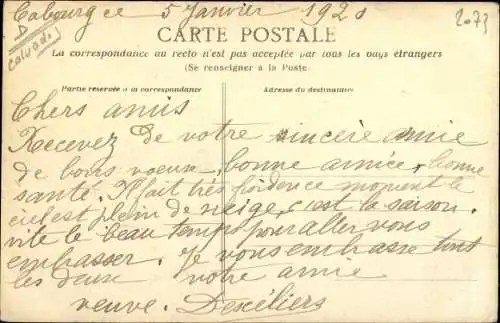 Cabourg ce 5 Janvier 1920
2073
D
Calvados
CARTE POSTALE
La correspondance au recto n'est pas acceptée par tous les pays étrangers
(Se renseigner à la Poste)
Partie réservée à la correspondance
Adresse du destinataire
Chers amis
Recevez de votre sincère amie
de bons voeux, bonne année, bonne
santé. Il fait très froid en ce moment le
ciel est plein de neige, c'est la saison.
vite le beau temps pour aller vous
embrasser. Je vous embrasse tous
les deux votre amie
veuve. Descéliers